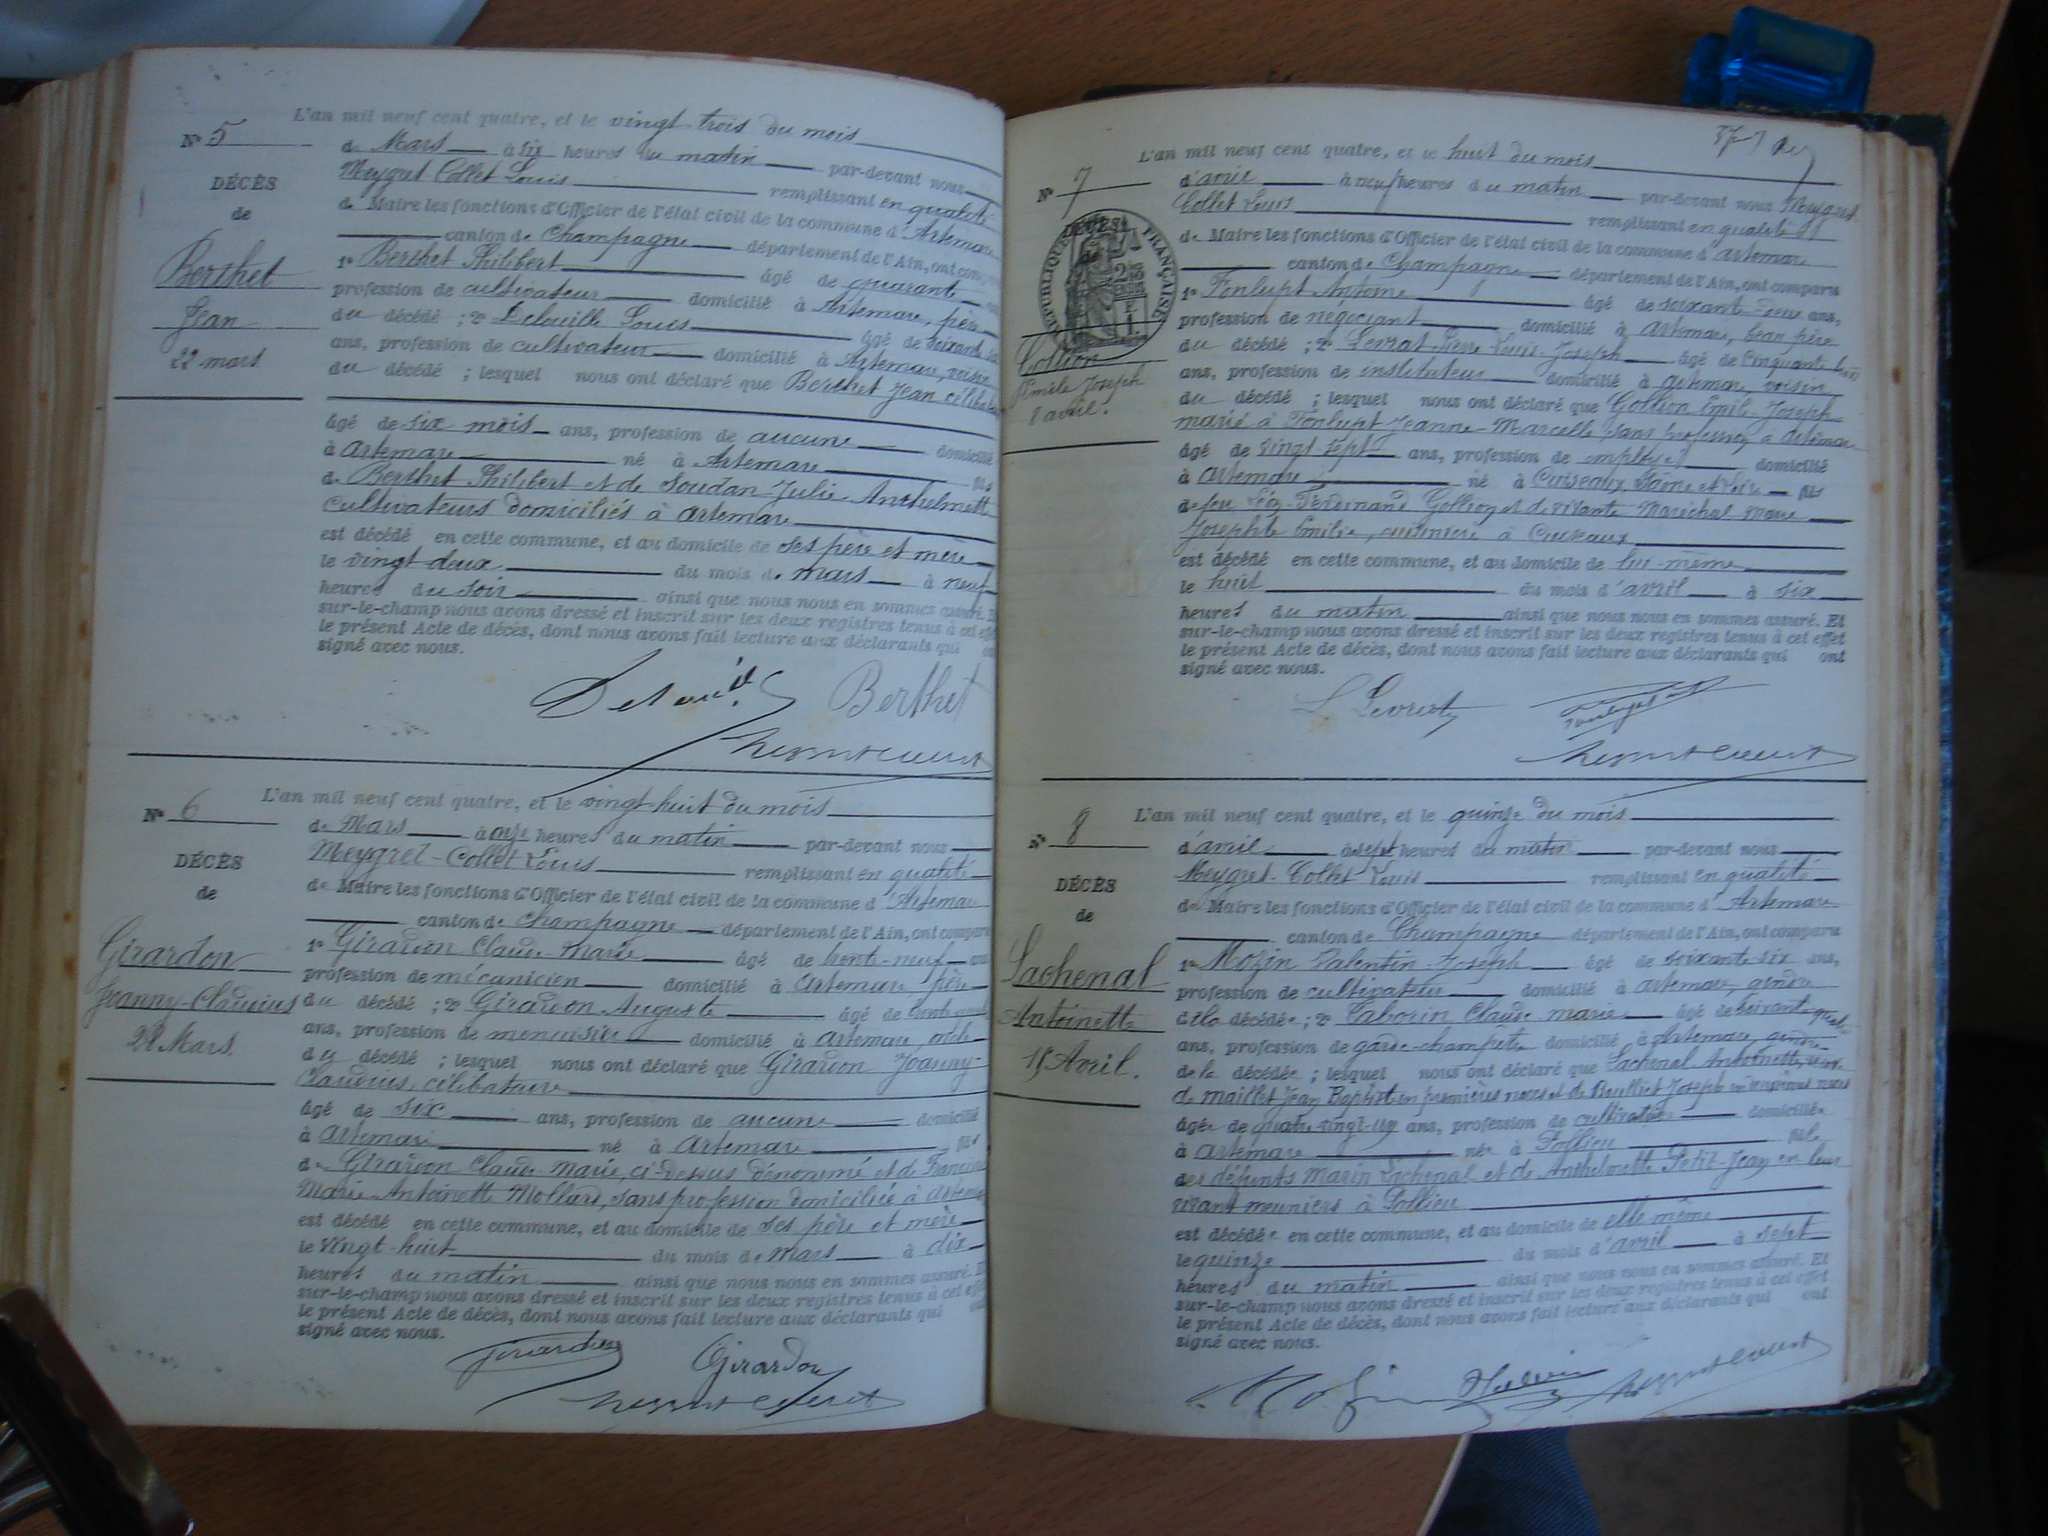 N° 5
DÉCÈS
de
Berthet
Jean
22 mars
L'an mil neuf cent quatre, et le vingt trois du mois
de Mars à six heures du matin par-devant nous
Meygret Collet Louis remplissant en qualité
de Maire les fonctions d'Officier de l'état civil de la commune d'Artemare
canton de Champagne département de l'Ain, ont comparu
1° Berthet Philibert âgé de quarante
profession de cultivateur domicilié à Artemare, père
du décédé ; 2° Louis âgé de soixante
ans, profession de cultivateur domicilié à Artemare, voisin
du décédé ; lesquel nous ont déclaré que Berthet Jean célibataire
âgé de six mois ans, profession de aucune domicilié
à Artemare né à Artemare fils
de Berthet Philibert et de Soudan Julie Anthelmette
cultivateurs domiciliés à Artemare
est décédé en cette commune, et au domicile de ses père et mère
le vingt deux du mois de mars à neuf
heures du soir ainsi que nous nous en sommes assuré. Et
sur-le-champ nous avons dressé et inscrit sur les deux registres tenus à cet effet
le présent Acte de décès, dont nous avons fait lecture aux déclarants qui ont
signé avec nous.
Berthet
N° 6
DÉCÈS
de
Girardon
Joanny-Claudius
28 Mars.
L'an mil neuf cent quatre, et le vingt-huit du mois
de Mars à onze heures du matin par-devant nous
Meygret-Collet Louis remplissant en qualité
de Maire les fonctions d'Officier de l'état civil de la commune d'Artemare
canton de Champagne département de l'Ain, ont comparu
1° Girardon Claude-Marie âgé de trente-neuf ans
profession de mécanicien domicilié à Artemare père
du décédé ; 2° Girardon Auguste âgé de trente
ans, profession de menuisier domicilié à Artemare, oncle
du décédé ; lesquel nous ont déclaré que Girardon Joanny-
Claudius, célibataire
âgé de six ans, profession de aucune domicilié
à Artemare né à Artemare fils
de Girardon Claude Marie, ci-dessus dénommé et de Francine
Marie Antoinette Mollard, sans profession domiciliée à Artemare
est décédé en cette commune, et au domicile de ses père et mère
le vingt-huit du mois de mars à dix
heures du matin ainsi que nous nous en sommes assuré. Et
sur-le-champ nous avons dressé et inscrit sur les deux registres tenus à cet effet
le présent Acte de décès, dont nous avons fait lecture aux déclarants qui ont
signé avec nous.
Girardon Girardon
N° 7
DÉCÈS
RÉPUBLIQUE FRANÇAISE
Gollion
Emile Joseph
8 avril.
L'an mil neuf cent quatre, et le huit du mois
d'avril à neuf heures du matin par-devant nous Meygret
Collet Louis remplissant en qualité
de Maire les fonctions d'Officier de l'état civil de la commune d'Artemare
canton de Champagne département de l'Ain, ont comparu
1° Fonlupt Antoine âgé de soixante-deux ans,
profession de négociant domicilié à Artemare, beau père
du décédé ; 2° Levrat Pierre Louis Joseph âgé de cinquante
ans, profession de instituteur domicilié à Artemare, voisin
du décédé ; lesquel nous ont déclaré que Gollion Emile Joseph
marié à Fonlupt Jeanne-Marcelle sans profession à Artemare
âgé de vingt-sept ans, profession de employé domicilié
à Artemare né à Cuiseaux, Saône et Loire fils
de feu Léon Ferdinand Gollion et de vivante Maréchal Marie
Josephte Emilie, à Cuiseaux
est décédé en cette commune, et au domicile de lui-même
le huit du mois d'avril à six
heures du matin ainsi que nous nous en sommes assuré. Et
sur-le-champ nous avons dressé et inscrit sur les deux registres tenus à cet effet
le présent Acte de décès, dont nous avons fait lecture aux déclarants qui ont
signé avec nous.
L Levrat
N° 8
DÉCÈS
de
Lachenal
Antoinette
15 Avril.
L'an mil neuf cent quatre, et le quinze du mois
d'avril à sept heures du matin par-devant nous
Meygret-Collet Louis remplissant en qualité
de Maire les fonctions d'Officier de l'état civil de la commune d'Artemare
canton de Champagne département de l'Ain, ont comparu
1° Mozin Valentin Joseph âgé de soixante-six ans,
profession de cultivateur domicilié à Artemare, gendre
de la décédée ; 2° Taborin Claude Marie âgé de soixante-quatre
ans, profession de garde-champêtre domicilié à Artemare, gendre
de la décédée ; lesquel nous ont déclaré que Lachenal Antoinette, veuve
de Maillet Jean Baptiste en premières noces et de Joseph en noces
âgée de quatre-vingt-un ans, profession de domiciliée
à Artemare née à Pollieu fille
des défunts Marin Lachenal et de Anthelmette Petit-Jean en leur
vivant meuniers à Pollieu
est décédée en cette commune, et au domicile de elle même
le quinze du mois d'avril à sept
heures du matin ainsi que nous nous en sommes assuré. Et
sur-le-champ nous avons dressé et inscrit sur les deux registres tenus à cet effet
le présent Acte de décès, dont nous avons fait lecture aux déclarants qui ont
signé avec nous.